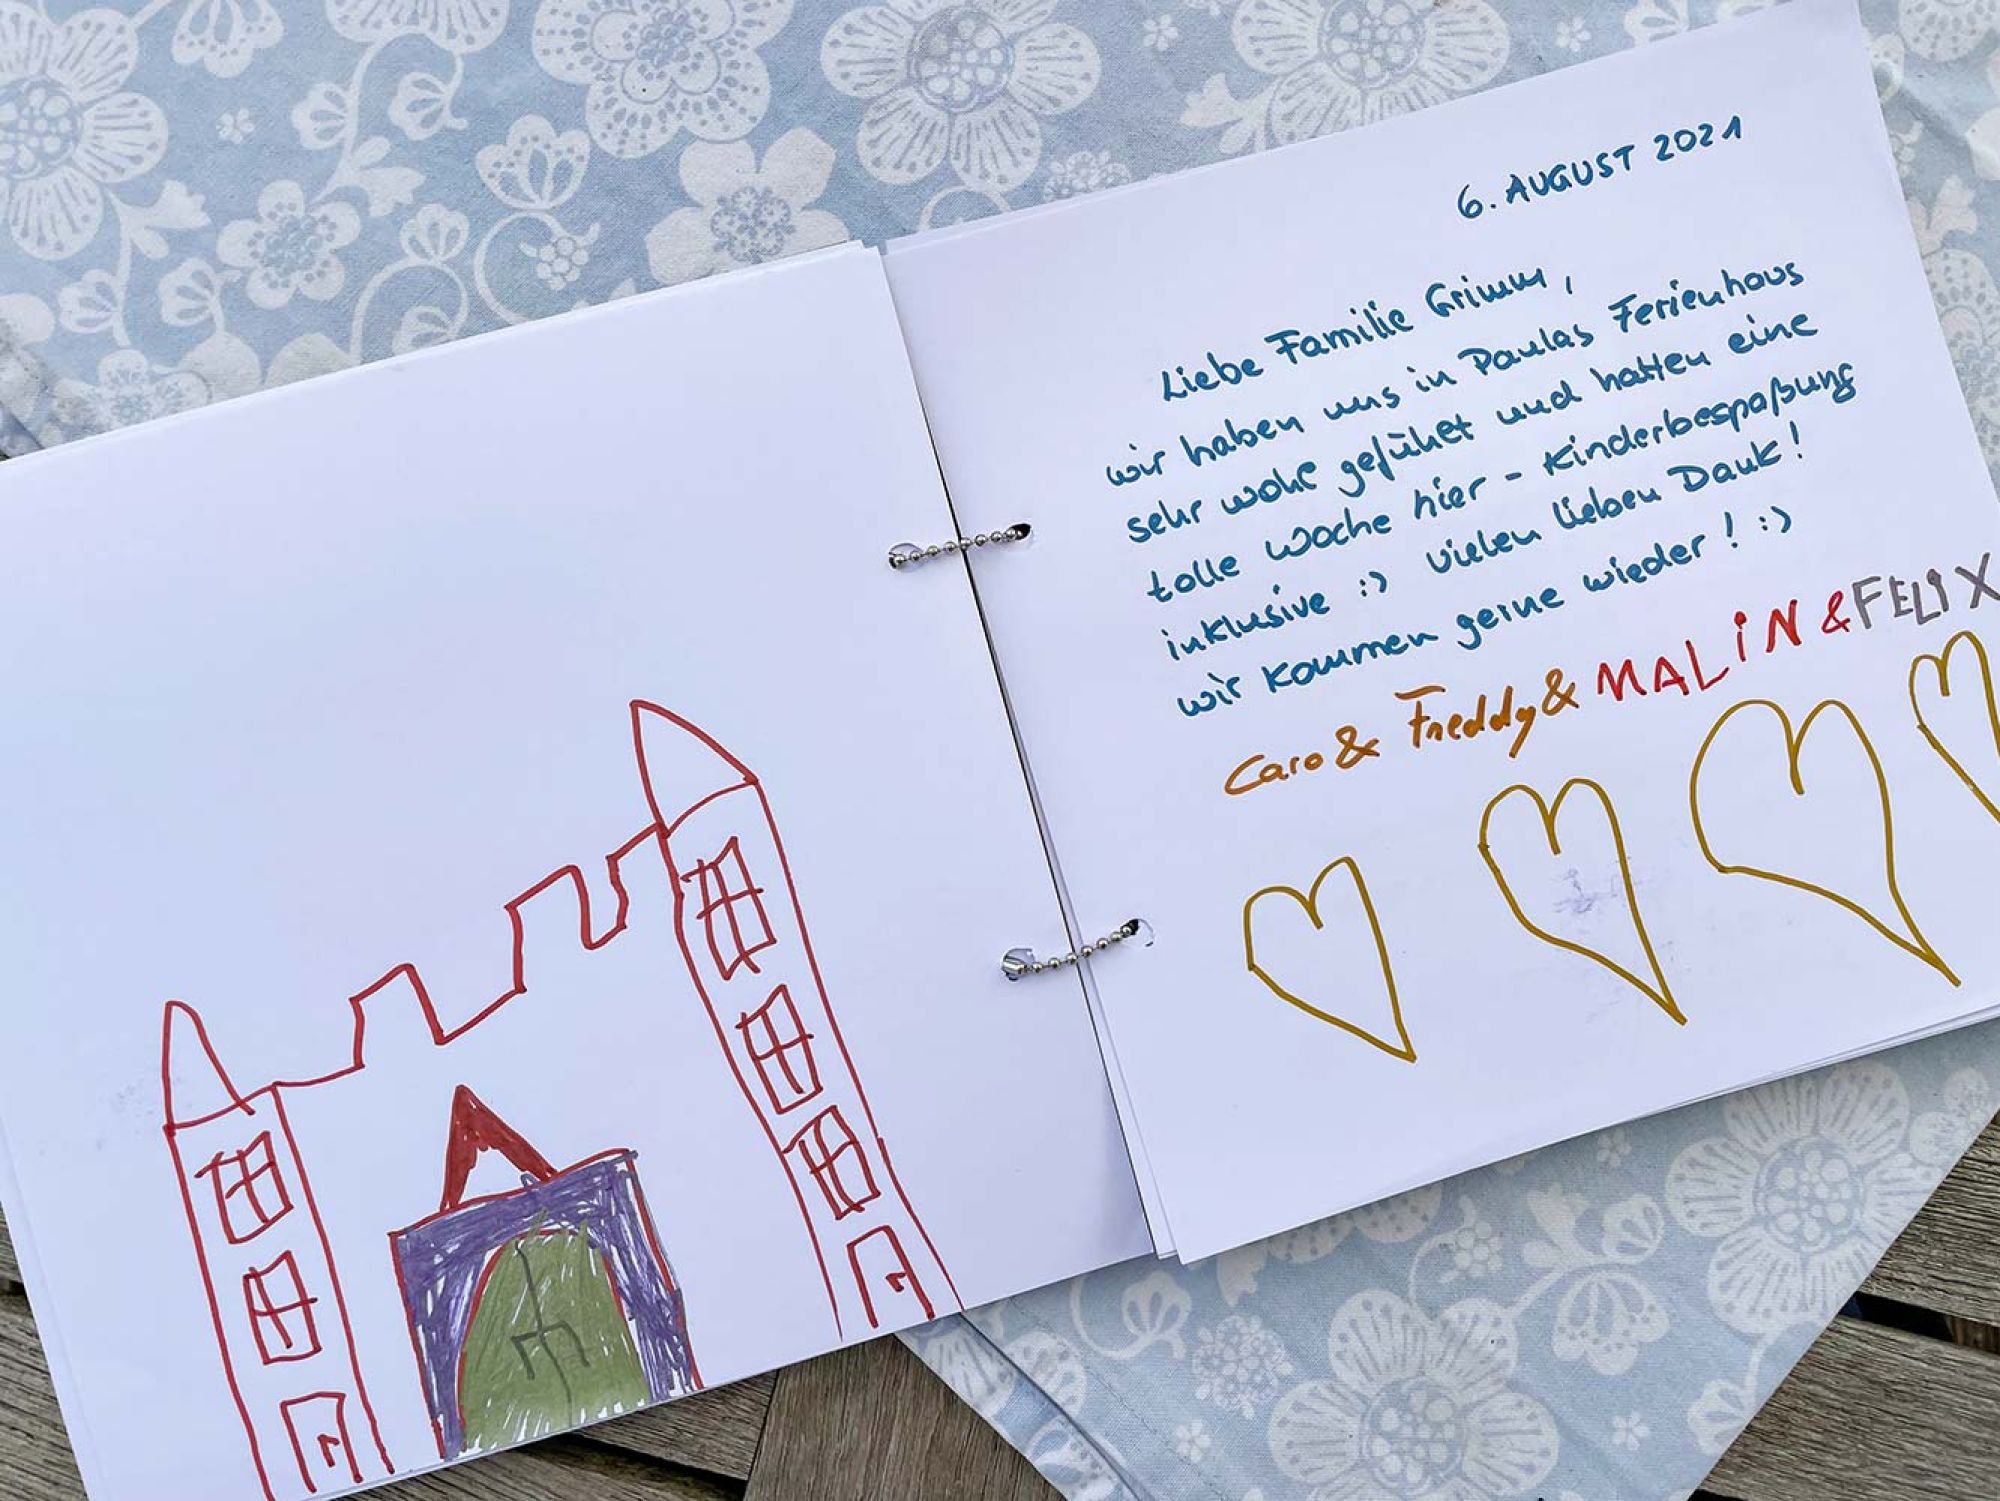 6. AUGUST 2021
Liebe Familie Grimm,
wir haben uns in Paulas Ferienhaus
sehr wohl gefühlt und hatten eine
tolle Woche hier - Kinderbespaßung
inklusive :) Vielen lieben Dank!
Wir kommen gerne wieder! :)
Caro & Freddy & MALiN & FELIX